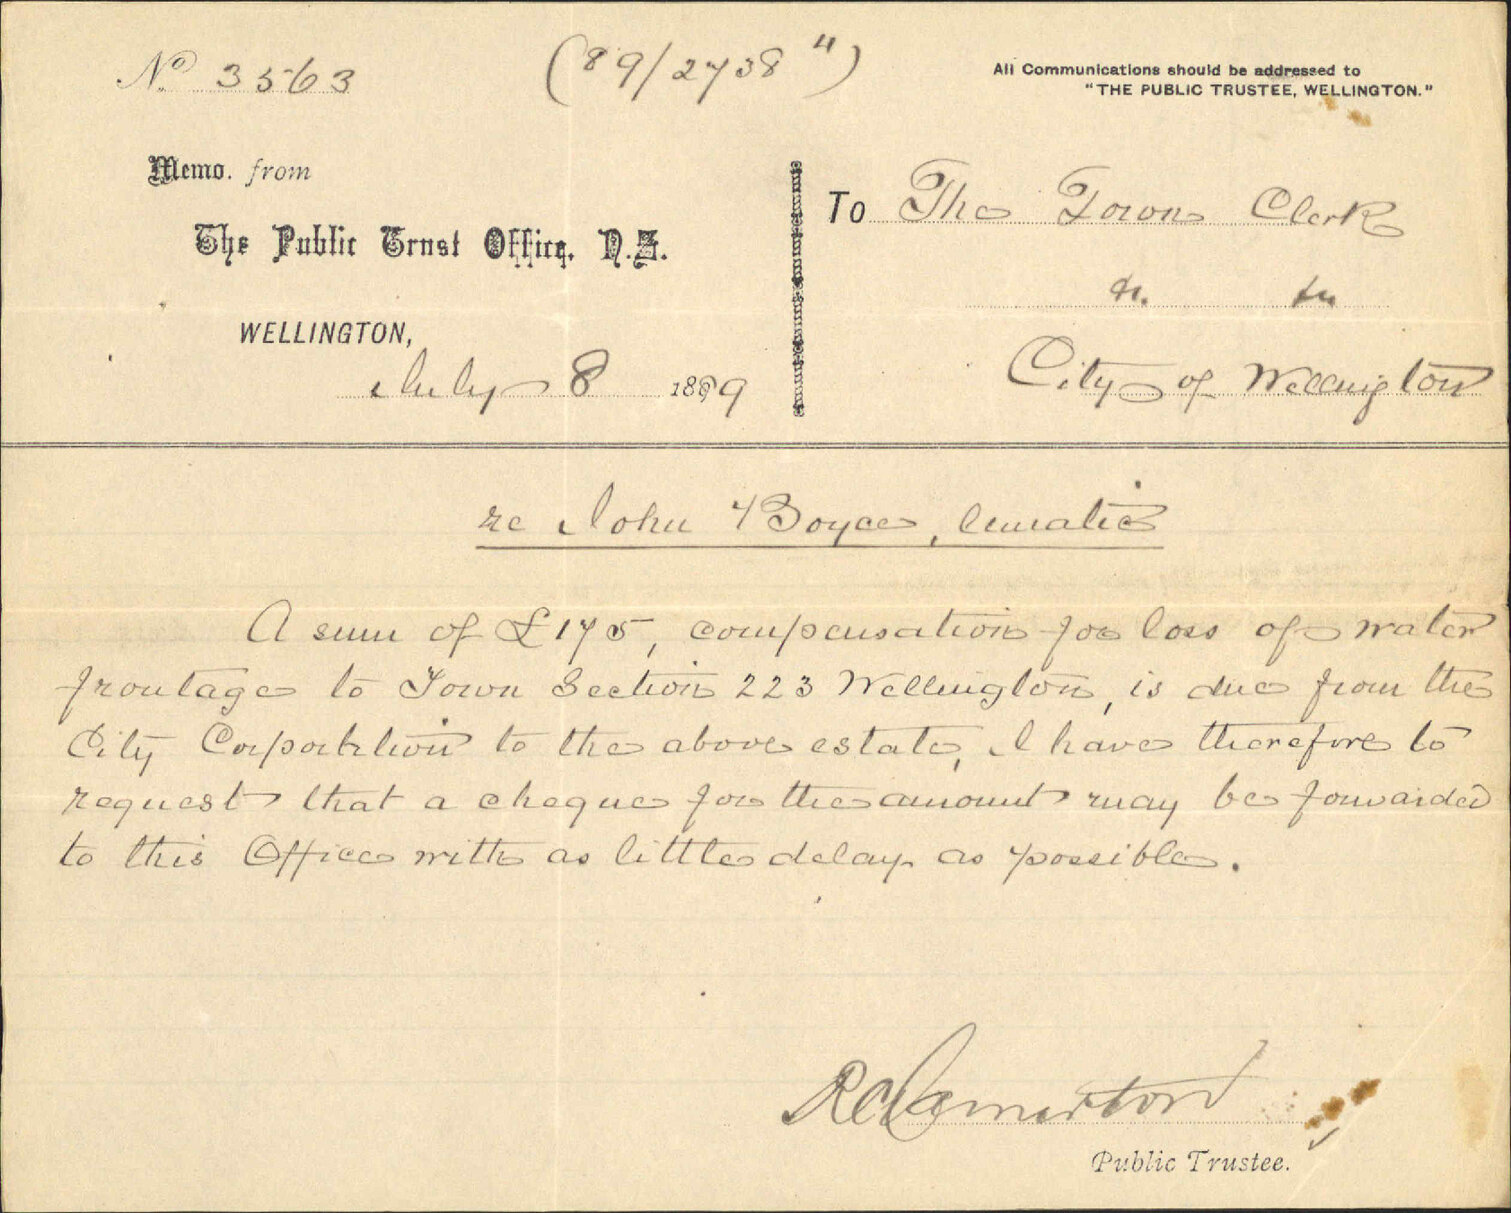 No 3563
(89/2738 ")
All Communications should be addressed to
"THE PUBLIC TRUSTEE, WELLINGTON."
Memo. from
The Public Trust Office, N.Z.
WELLINGTON,
July 8 1889
To The Town Clerk
City of Wellington
re John Boyce, lunatic
A sum of £175, compensation for loss of water
frontage to Town Section 223 Wellington, is due from the
City Corporation to the above estate, I have therefore to
request that a cheque for the amount may be forwarded
to this Office with as little delay as possible.
RC Hamerton
Public Trustee.